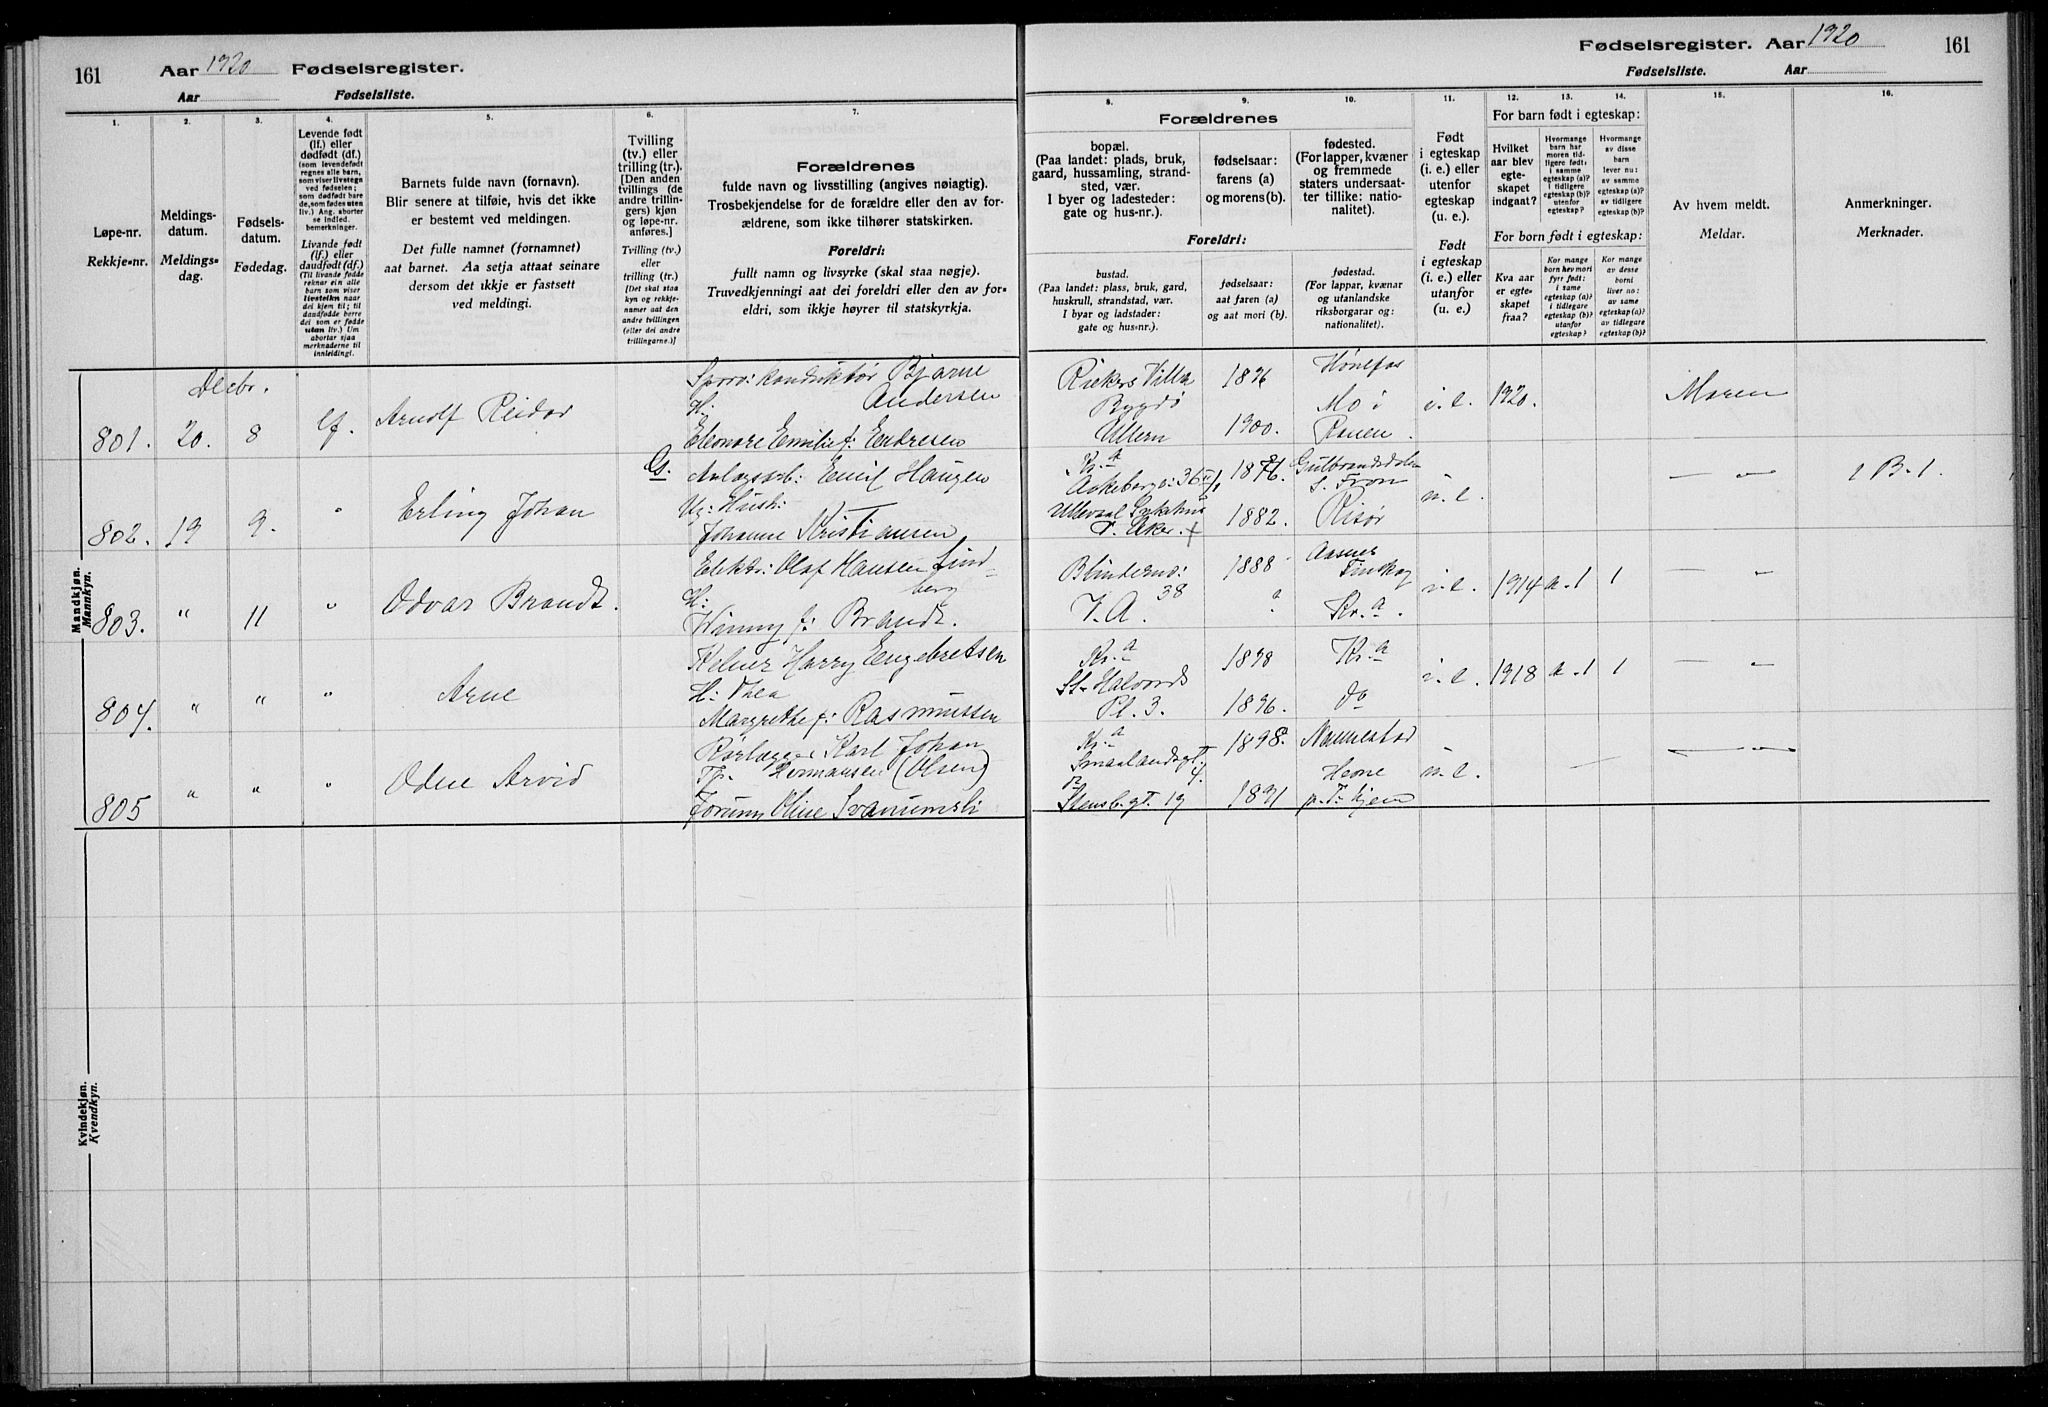 161
Aar 1920 Fødselsregister.
Aar Fødselsliste.
1.
2.
3.
4.
5.
6.
7.
Løpe-nr.
Rekkje-nr.
Meldings-
datum.
Meldings-
dag.
Fødsels-
datum.
Fødedag.
Levende født
(lf.) eller
dødfødt (df.)
(som levendefødt
regnes alle barn,
som viser livstegn
ved fødselen;
som dødfødt bare
de, som fødes uten
liv.) Ang. aborter
se indled.
bemerkninger.
Livande født
(lf.) eller
daudfødt (df.)
(Til livande fødde
reknar ein alle
born som viser
livsteikn naar
dei kjem til; til
daudfødde berre
dei som er fødde
utan liv.) Um
abortar sjaa
merknaderne til
innleidingi.
Barnets fulde navn (fornavn).
Blir senere at tilføie, hvis det ikke
er bestemt ved meldingen.
Det fulle namnet (fornamnet)
aat barnet. Aa setja attaat seinare
dersom det ikkje er fastsett
ved meldingi.
Tvilling
(tv.) eller
trilling (tr.).
[Den anden
tvillings (de
andre trillin-
gers) kjøn
og løpe-nr.
anføres.]
Tvilling (tv.)
eller
trilling (tr.)
[Det skal staa
kyn og rekkje-
numer aat den
andre tvillingen
(eller dei andre
trillingarne.)]
Forældrenes
fulde navn og livsstilling (angives nøiagtig).
Trosbekjendelse for de forældre eller den av for-
ældrene, som ikke tilhører statskirken.
Foreldri:
fullt namn og livsyrke (skal staa nøgje).
Truvedkjenningi aat dei foreldri eller den av for-
eldri, som ikkje høyrer til statskyrkja.
Mandkjøn.
Mannkyn.
Decbr.
801. 20. 8 lf. Arnolf Reidar
Sporv: konduktør Bjarne
Andersen
H:
Eleonore Emilie f: Endresen
802. 19 9. " Erling Johan
Gs. Anlægsarb: Emil Haugen
Ug: Hush:
Johanne Kristiansen
803. " 11 " Odvar Brandt.
Elektr: Olaf Hansen Lind-
berg
H:
f: Brandt.
804. " " " Arne
Kelner Harry Engebretsen
H: Thea
Margrethe f: Rasmussen
805 " " " Odne Arvid
Rørlægger Karl Johan
Hermansen (Olsen)
Tp.
Jorunn Oline
Kvindekjøn.
Kvendkyn.
Fødselsregister. Aar 1920
161
Fødselsliste. Aar
8.
9.
10.
11.
12.
13.
14.
15.
16.
Forældrenes
bopæl.
(Paa landet: plads, bruk,
gaard, hussamling, strand-
sted, vær.
I byer og ladesteder:
gate og hus-nr.).
fødselsaar:
farens (a)
og morens (b).
fødested.
(For lapper, kvæner
og fremmede
staters undersaat-
ter tillike: natio-
nalitet).
Foreldri:
bustad.
(Paa landet: plass, bruk, gard,
huskrull, strandstad, vær.
I byar og ladstader:
gate og hus-nr.).
fødselsaar:
aat faren (a)
og aat mori (b).
fødestad.
(For lappar, kvænar
og utanlandske
riksborgarar og:
nationalitet).
Født
i egteskap
(i. e.) eller
utenfor
egteskap
(u. e.).
Født
i egteskap
(i. e.) eller
utanfor
egteskap
(u. e.).
For barn født i egteskap:
Hvilket
aar blev
egte-
skapet
indgaat?
Hvormange
barn har
moren tid-
ligere født:
i samme
egteskap (a)?
i tidligere
egteskap (b)?
utenfor
egteskap?
Hvormange
av disse
barn
lever nu:
av samme
egteskap (a)?
av tidligere
egteskap (b)?
For born født i egteskap:
Kva aar
er egte-
skapet
fraa?
Kor mange
born hev mori
fyrr født:
i same
egteskap (a)?
i tidlegare
egteskap (b)?
utanfor
egteskap?
Kor mange
av desse
borni
liver no:
av same
egteskap (a)?
av tidlegare
egteskap (b)?
Av hvem meldt.
Meldar.
Anmerkninger.
Merknader.
Riekers Villa 1896 Hønefos
Bygdø Mo i i. e. 1920. Moren
Ullern 1900. Ranen.
Kr.a Gulbrandsdalen
Akebergv: 36 S. Fron u. e. — " — 1 B. 1.
Ullevaal Sykehus 1882. Risør
V. Aker. +
Blindernv: 1888 Aasnes
38 Finskog i. e. 1914 a. 1 1 — " —
V. A. ? Kr.a.
Kr.a 1898 Kr.a
St. Halvards i. e. 1918 a. 1 1 — " —
Pl. 3. 1896. do
Kr.a 1898. Nannestad
Smaalandsgt. 4. u. e. — — " —
Stensb. gt. 19 1891